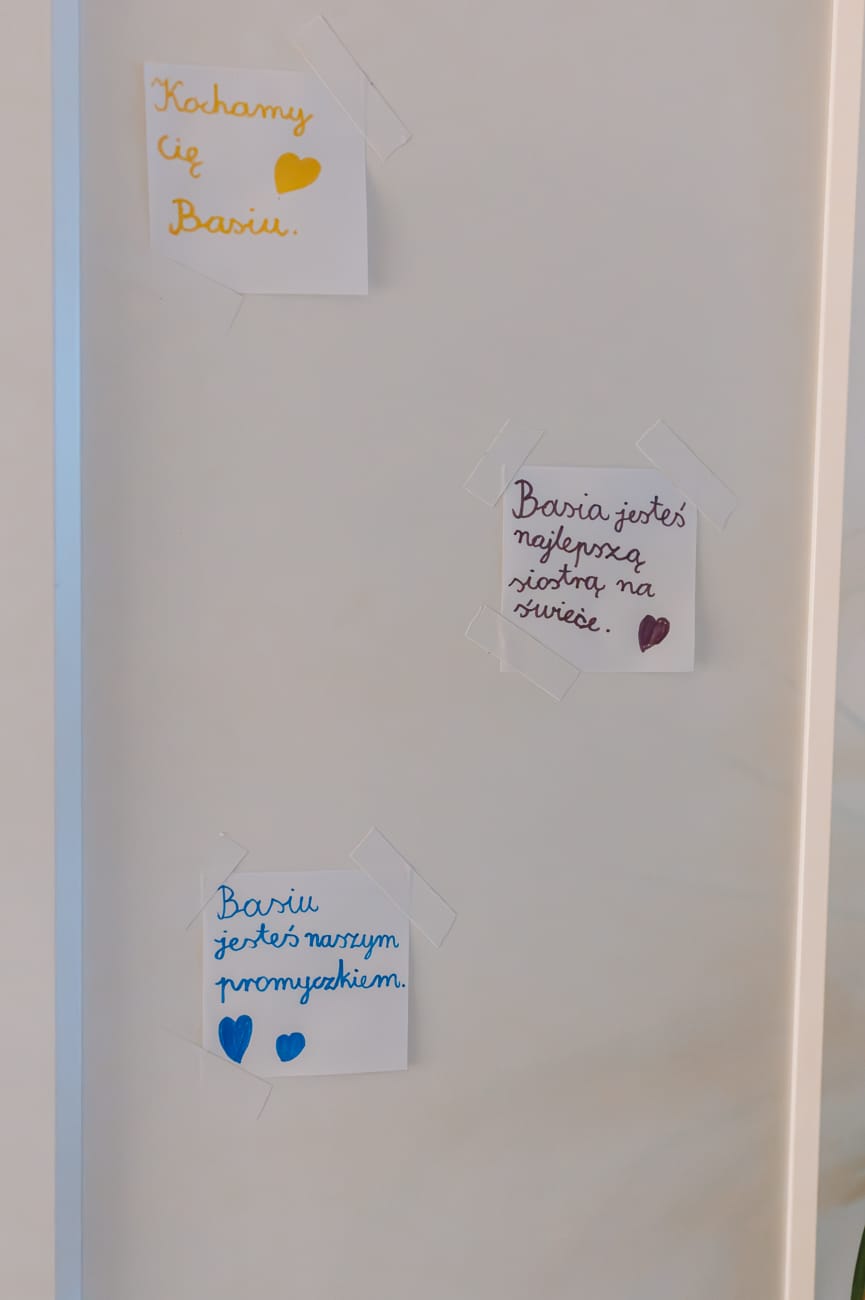 Kochamy
Cię
Basiu.
Basia jesteś
najlepszą
siostrą na
świeće.
Basiu
jesteś naszym
promyczkiem.